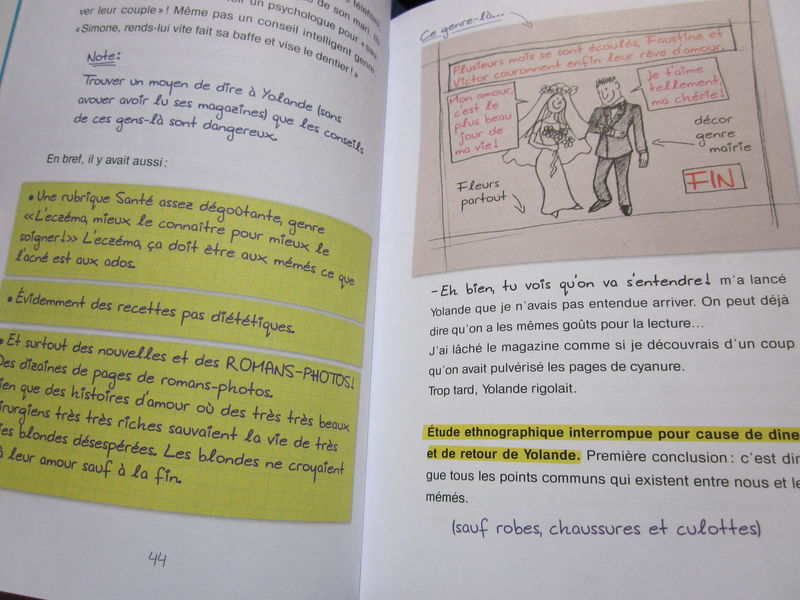 de son mari, ils
un psychologue pour « sau
ver leur couple » ! Même pas un conseil intelligent genre
« Simone, rends-lui vite fait sa baffe et vise le dentier ! »
Note :
Trouver un moyen de dire à Yolande (sans
avouer avoir lu ses magazines) que les conseils
de ces gens-là sont dangereux.
En bref, il y avait aussi :
• Une rubrique Santé assez dégoûtante, genre
«L'eczéma, mieux le connaître pour mieux le
soigner!» L'eczéma, ça doit être aux mémés ce que
l'acné est aux ados.
• Évidemment des recettes pas diététiques.
• Et surtout des nouvelles et des ROMANS-PHOTOS!
Des dizaines de pages de romans-photos.
que des histoires d'amour où des très très beaux
très très riches sauvaient la vie de très
blondes désespérées. Les blondes ne croyaient
à leur amour sauf à la fin.
44
Ce genre-là...
Plusieurs mois se sont écoulés, Faustine et
Victor couronnent enfin leur rêve d'amour.
Mon amour,
c'est le
plus beau
jour de
ma vie!
Je t'aime
tellement,
ma chérie!
décor
genre
mairie
Fleurs
partout
FIN
-Eh bien, tu vois qu'on va s'entendre! m'a lancé
Yolande que je n'avais pas entendue arriver. On peut déjà
dire qu'on a les mêmes goûts pour la lecture…
J'ai lâché le magazine comme si je découvrais d'un coup
qu'on avait pulvérisé les pages de cyanure.
Trop tard, Yolande rigolait.
Étude ethnographique interrompue pour cause de dîne
et de retour de Yolande. Première conclusion : c'est din
gue tous les points communs qui existent entre nous et le
mémés.
(sauf robes, chaussures et culottes)